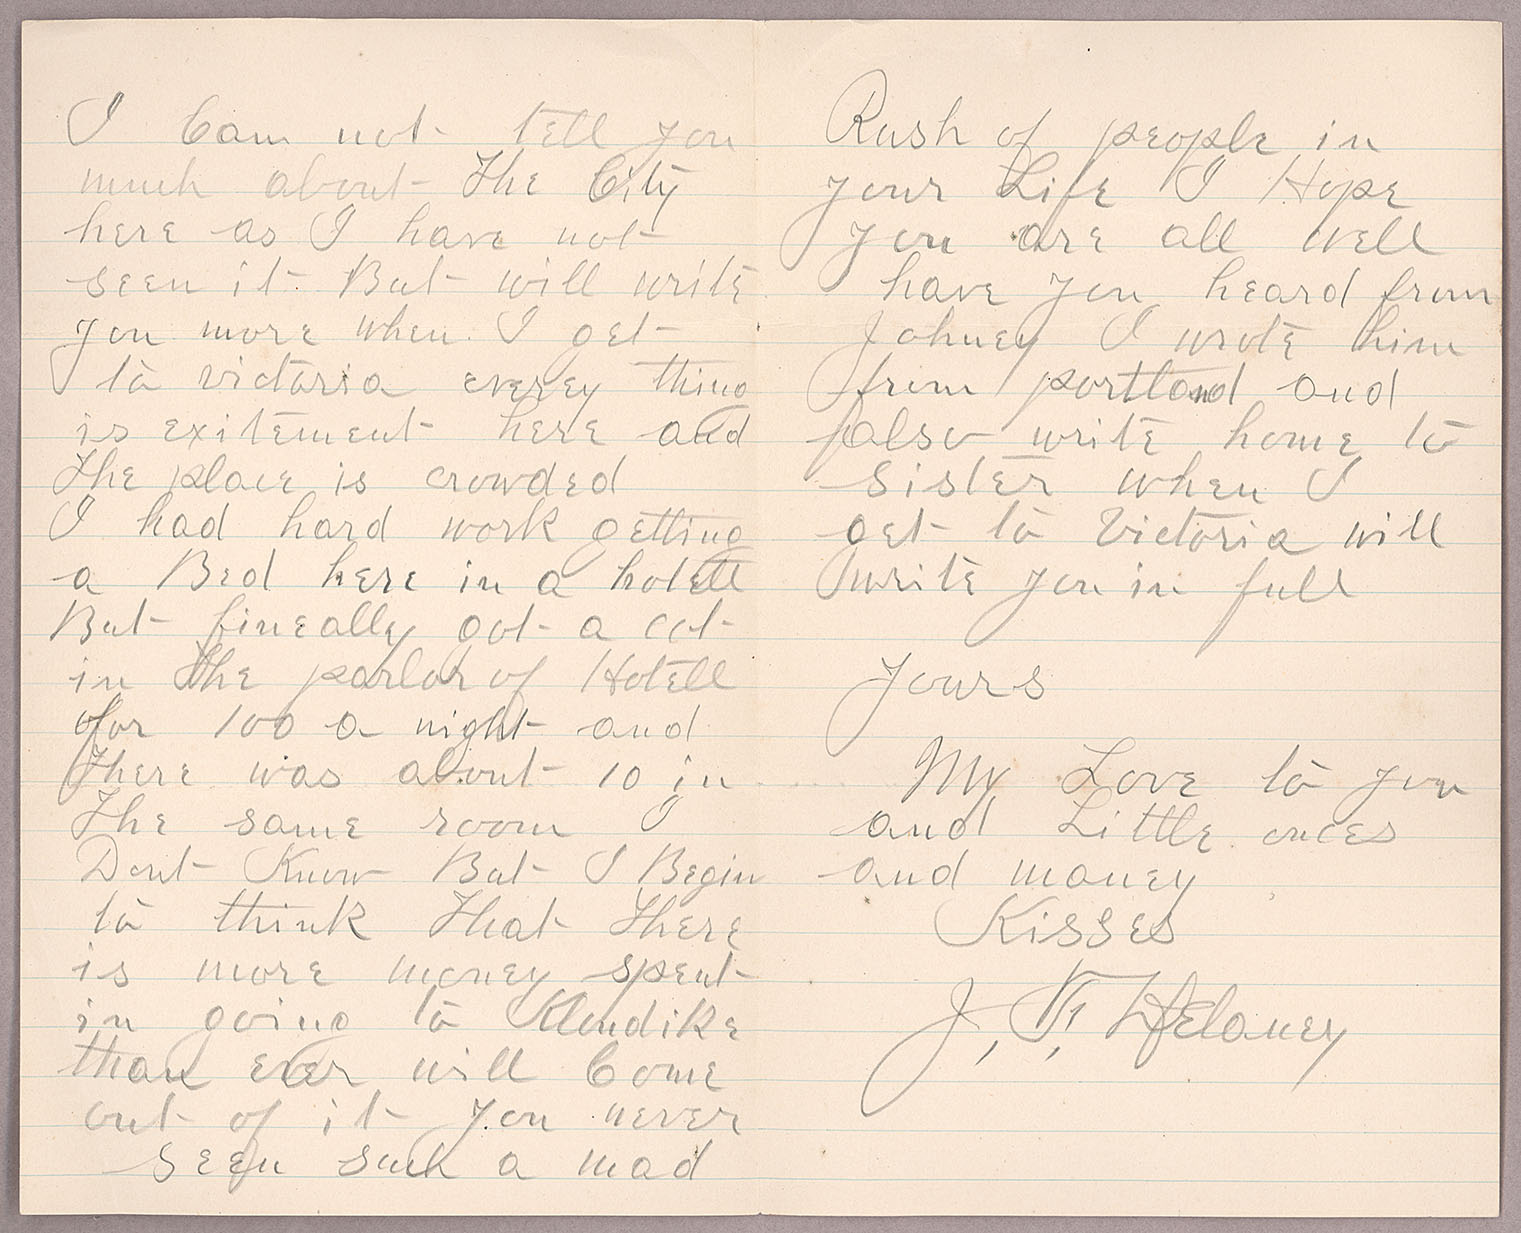 I Cam not tell you
much about The City
here as I have not
seen it But will write
you more when I get
to victoria everey thing
is exitement here and
The place is crowded
I had hard work getting
a Bed here in a hotell
But fineally got a cot
in The parlor of Hotell
for 100 a night and
There was about 10 in
The same room I
Dont Know But I Begin
to think That There
is more money spent
in going to Klondike
than ever will Come
out of it you never
seen such a mad
Rush of people in
your Life I Hope
you are all well
have you heard from
Johney I wrote him
from portland and
also write home to
Sister when I
get to Victoria will
write you in full
Yours
My Love to you
and Little onces
and maney
Kisses
J, T, Delaney